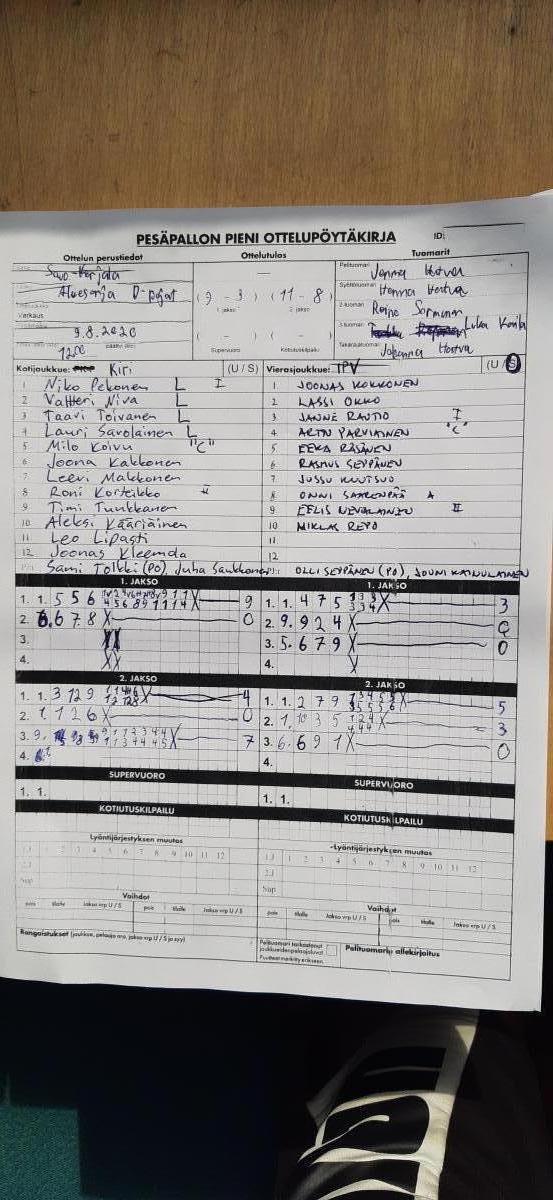 PESÄPALLON PIENI OTTELUPÖYTÄKIRJA
ID:
Ottelun perustiedot
Ottelutulos
Tuomarit
Savo-Karjala
Aluesarja D-pojat
Varkaus
9.8.2020
1200
(9 - 3) (11 - 8)
1. jakso 2. jakso
( - ) ( - )
Supervuoro Kotiutuskilpailu
Pelituomari Jenna Hertva
Syöttötuomari Henna Hertva
2-tuomari Raine Sormunen
3-tuomari Luka
Takarajatuomari Johanna Hertva
Kotijoukkue: Kiri (U / S)
1 Niko Pekonen L I
2 Valtteri Niva L
3 Taavi Toivanen L
4 Lauri Savolainen L
5 Milo Koivu "C"
6 Joona Kakkonen
7 Leevi Makkonen
8 Roni Korteikko II
9 Timi Tunkkanen
10 Aleksi Kääriäinen
11 Leo Lipasti
12 Joonas Kleemola
Sami Tolkki (PO) Juha Saukkonen
Vierasjoukkue: TPV (U / S)
1 JOONAS KOKKONEN
2 LASSI OKKO
3 JANNE RAUTIO I
4 ARTTU PARVIAINEN "C"
5 EEKA RÄSÄNEN
6 RASMUS SEPPÄNEN
7 JUSSU KUUTSUO
8 ONNI SAARENPÄÄ A
9 EELIS NEVALAINEN II
10 MIKLAS REPO
11
12
OLLI SEPPÄNEN (PO), JOUNI KAINULAINEN
1. JAKSO
1. 1. 5 5 6 9
2. 6. 6 7 8 X 0
3.
4.
1. JAKSO
1. 1. 4 7 5 3
2. 9. 9 2 4 X 0
3. 5. 6 7 9 X 0
4.
2. JAKSO
1. 1. 3 12 9 4
2. 1. 1 2 6 X 0
3. 9. 7
4.
2. JAKSO
1. 1. 2 7 9 5
2. 1. 10 3 5 3
3. 6. 6 9 1 X 0
4.
SUPERVUORO
1. 1.
SUPERVUORO
1. 1.
KOTIUTUSKILPAILU
KOTIUTUSKILPAILU
Lyöntijärjestyksen muutos
1 2 3 4 5 6 7 8 9 10 11 12
2.J
Sup
Lyöntijärjestyksen muutos
1.J 1 2 3 4 5 6 7 8 9 10 11 12
2.J
Sup
Vaihdot
pois tilalle Jakso vrp U / S pois tilalle Jakso vrp U / S
Vaihdot
pois tilalle Jakso vrp U / S pois tilalle Jakso vrp U / S
Rangaistukset (joukkue, pelaaja nro, jakso vrp U / S ja syy)
Pelituomari tarkastanut joukkueiden pelaajaluvat
Puutteet merkitty erikseen
Pelituomarin allekirjoitus